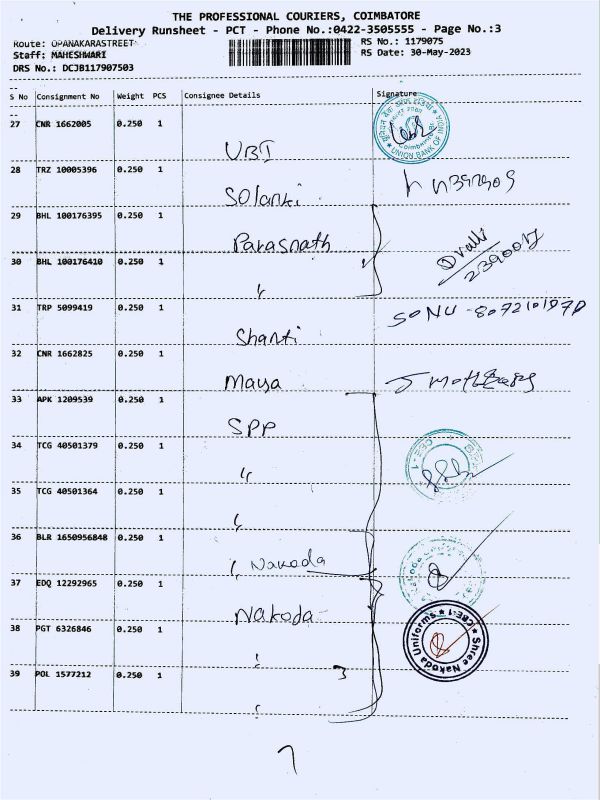 THE PROFESSIONAL COURIERS, COIMBATORE
Delivery Runsheet - PCT - Phone No.:0422-3505555 - Page No.:3
Route: OPANAKARASTREET
RS No.: 1179075
Staff: MAHESHWARI
RS Date: 30-May-2023
DRS No.: DCJB117907503
S No Consignment No Weight PCS Consignee Details Signature
27 CNR 1662005 0.250 1
UBI
UNION BANK OF INDIA
28 TRZ 10005396 0.250 1
Solanki
29 BHL 100176395 0.250 1
Parasnath
30 BHL 100176410 0.250 1
"
31 TRP 5099419 0.250 1
SONU - 8072101970
Shanti
32 CNR 1662825 0.250 1
Maya
33 APK 1209539 0.250 1
SPP
34 TCG 40501379 0.250 1
"
35 TCG 40501364 0.250 1
"
36 BLR 1650956848 0.250 1
" Nakoda
37 EDQ 12292965 0.250 1
Nakoda
38 PGT 6326846 0.250 1
Shree Nakoda Uniforms ★ CBE-1 ★
39 POL 1577212 0.250 1
3
7